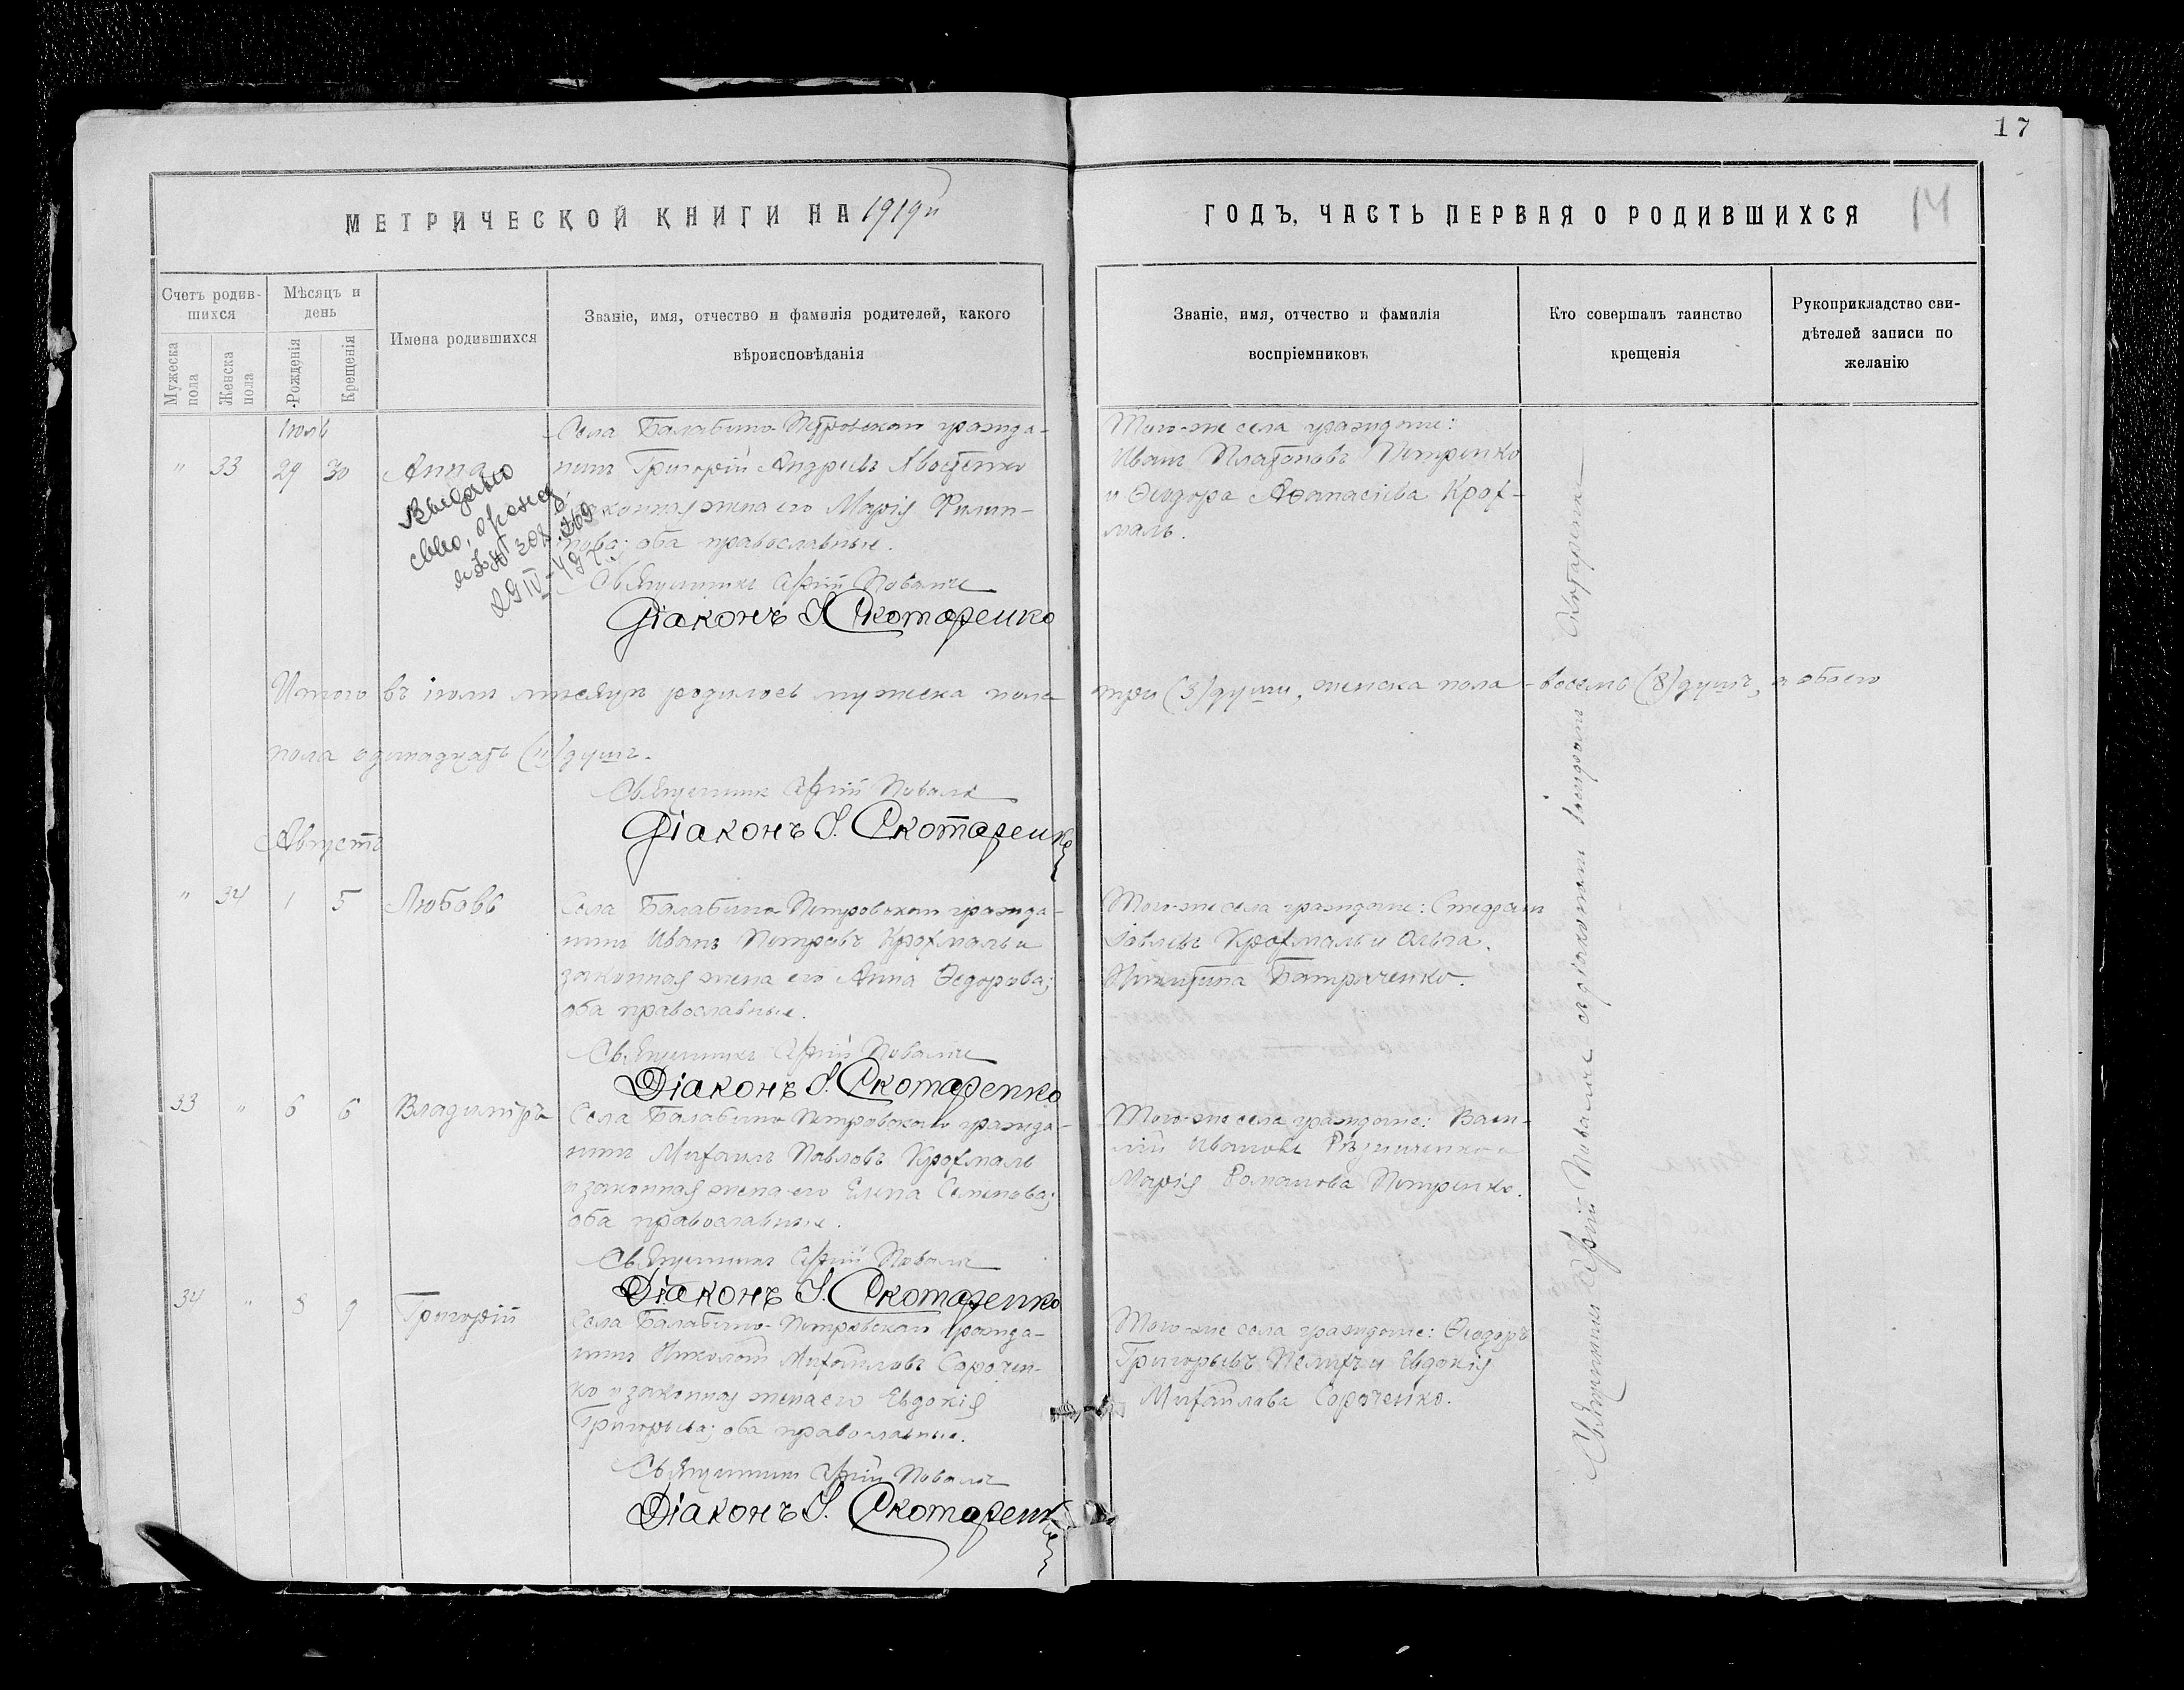 17
14
МЕТРИЧЕСКОЙ КНИГИ НА 1919й
ГОДЪ, ЧАСТЬ ПЕРВАЯ О РОДИВШИХСЯ
Счетъ родив-
шихся
Мѣсяцъ и
день
Мужеска
пола
Женска
пола
Рожденія
Крещенія
Имена родившихся
Званіе, имя, отчество и фамилія родителей, какого
вѣроисповѣданія
Званіе, имя, отчество и фамилія
воспріемниковъ
Кто совершалъ таинство
крещенія
Рукоприкладство сви-
дѣтелей записи по
желанію
Іюль
" 33 29 30 Анна
Выдано
Села Балабино-Петровскаго гражда-
нинъ Григорій Андреевъ
законная жена его Марія Филип-
пова; оба православные.
Священникъ Повало
Діаконъ І. Скотаренко
Того-же села граждане:
Иванъ Платоновъ Петренко
и Ѳеодора Аѳанасіева Крох-
маль.
Итого въ іюлѣ мѣсяцѣ родилось мужеска пола три (3) души, женска пола - восемь (8) душъ, а обоего
пола одинадцать (11) душъ.
Священникъ Повало
Діаконъ І. Скотаренко
Августъ
" 34 1 5 Любовь
Села Балабино-Петровскаго гражда-
нинъ Иванъ Петровъ Крохмаль и
законная жена его Анна Ѳедорова;
оба православные.
Священникъ Повало
Діаконъ І. Скотаренко
Того-же села граждане: Стефанъ
Іовлевъ Крохмаль и Ольга
Никитина Батраченко.
33 " 6 6 Владиміръ
Села Балабино-Петровскаго гражда-
нинъ Михаилъ Павловъ Крохмаль
и законная жена его Елена Семенова;
оба православные.
Священникъ Повало
Діаконъ І. Скотаренко
Того-же села граждане: Васи-
лій Ивановъ Рѣзниченко и
Марія Романова Петренко.
34 " 8 9 Григорій
Села Балабино-Петровскаго гражда-
нинъ Николай Михайловъ Сорочен-
ко и законная жена его Евдокія
Григорьева; оба православные.
Священникъ Повало
Діаконъ І. Скотаренко
Того-же села граждане: Ѳеодоръ
Григорьевъ и Евдокія
Михайлова Сороченко.
Священникъ Повало съ діакономъ Скотаренко